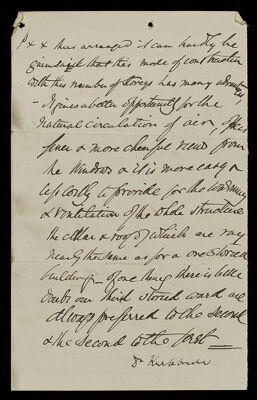 x x thus arranged it can hardly be
gainsaid that this mode of construction
with this number of storeys has many advantages
- It gives a better opportunity for the
natural circulation of air, offers
finer & more cheerful views from
the windows & it is more easy &
less costly to provide for the warming
& ventilation of the whole structure
the cellar & roof of which are very
nearly the same as for a one storied
building - of one thing there is little
doubt our third storied ward are
always preferred to the second
& the second to the first
Dr Kirkbride